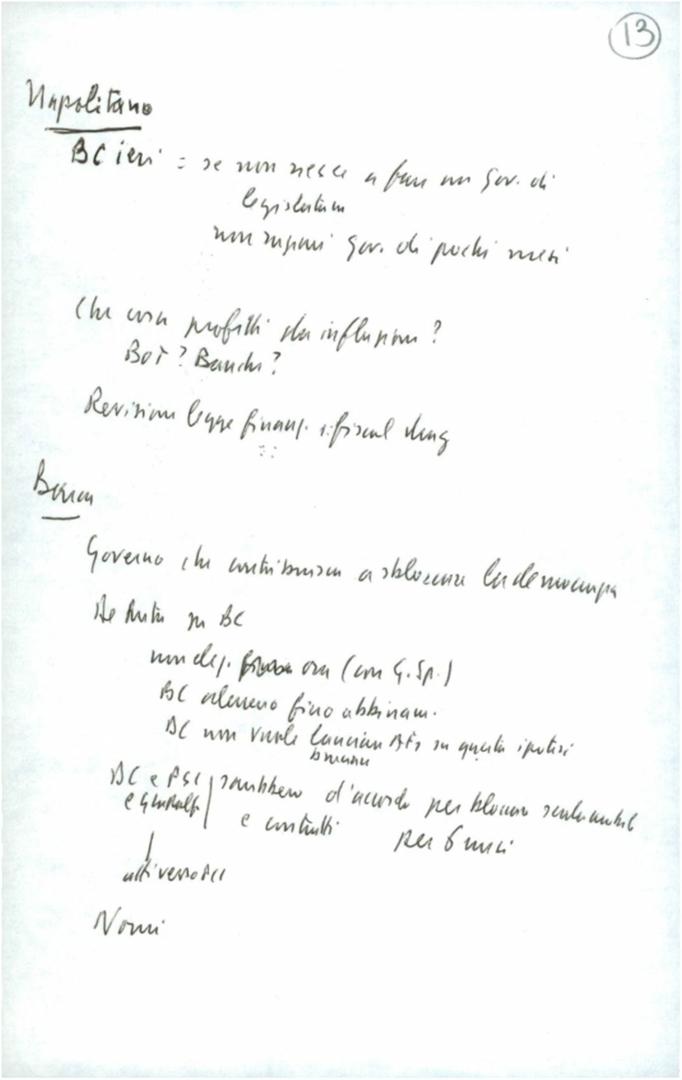 13
Napolitano
BC ieri = se non riesce a fare un gov. di
legislatura
non ripari gov. di pochi mesi
Che cosa profitti da inflazione?
BOT? Banche?
Revisione legge finanz. fiscal drag
Governo che contribuisca a sbloccare la democrazia
su BC
non ora (con G. Sp.)
BC almeno fino abbinam.
BC non vuole lanciare su questa ipotesi
BC e PSI sarebbero d'accordo per bloccare scala mobile
e contratti per 6 mesi
Nomi